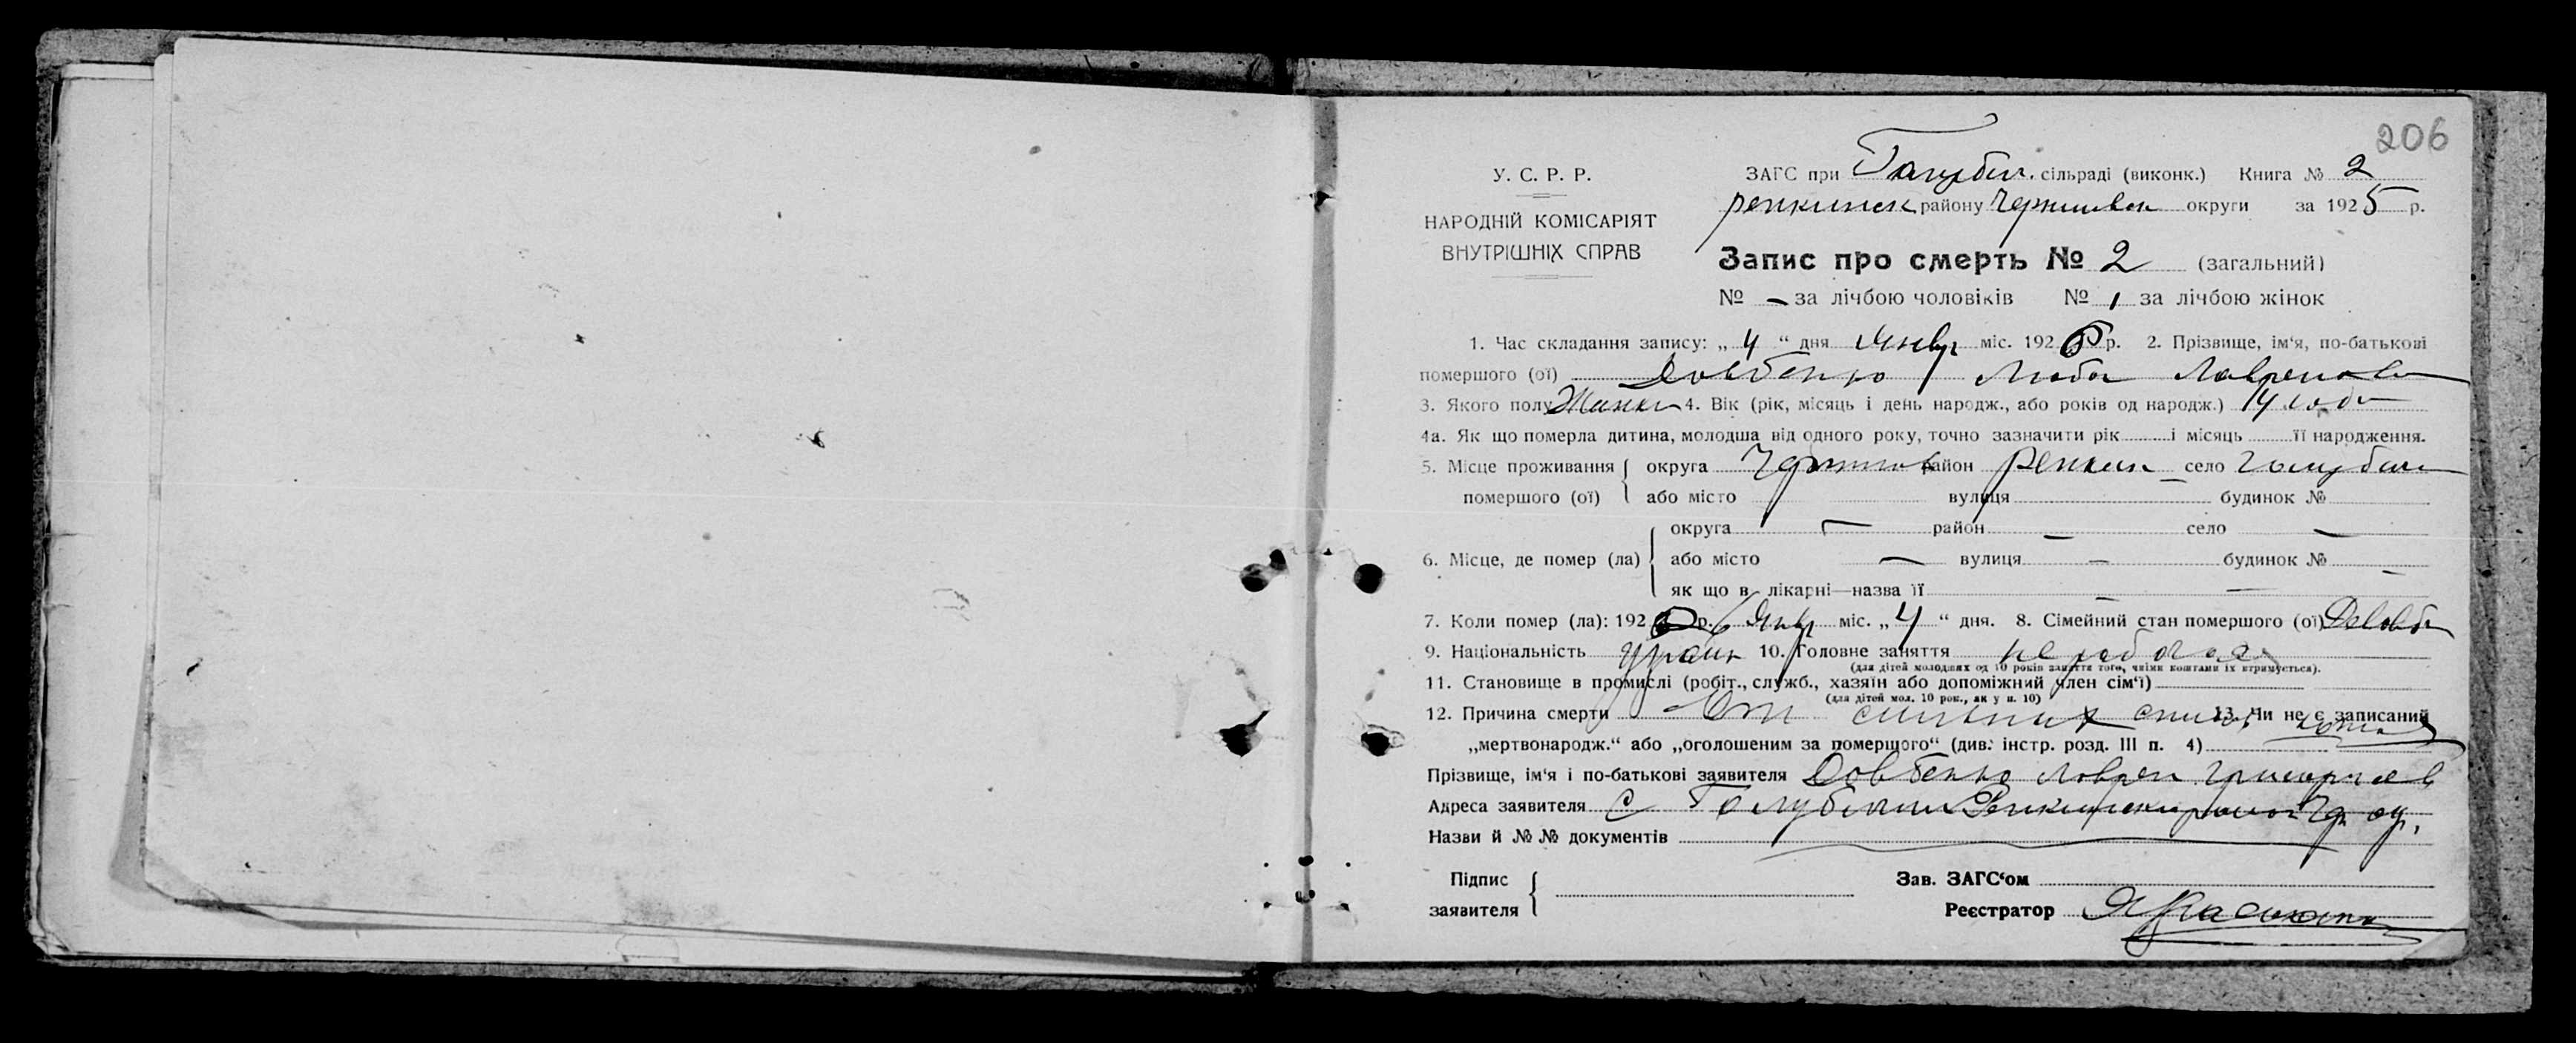 206
У. С. Р. Р.
НАРОДНІЙ КОМІСАРІЯТ
ВНУТРІШНІХ СПРАВ
ЗАГС при Голубич. сільраді (виконк.) Книга № 2
репкинск району Чернигов округи за 1925 р.
Запис про смерть № 2 (загальний)
№ – за лічбою чоловіків № 1 за лічбою жінок
1. Час складання запису: „ 4 “ дня Январ міс. 192 р. 2. Прізвище, ім‘я, по-батькові
помершого (ої) Довбенко Люба
3. Якого полу 4. Вік (рік, місяць і день народж., або років од народж.) 14
4а. Як що померла дитина, молодша від одного року, точно зазначити рік і місяць її народження.
5. Місце проживання помершого (ої) округа Чернигов район село
або місто вулиця будинок №
6. Місце, де помер (ла) округа – район – село –
або місто – вулиця – будинок № –
як що в лікарні—назва її – –
7. Коли помер (ла): 192 р. Январ міс. „ 4 “ дня. 8. Сімейний стан помершого (ої)
9. Національність 10. Головне заняття
(для дітей молодших од 10 років заняття того, чиїми коштами їх втримується).
11. Становище в промислі (робіт., служб., хазяїн або допоміжний член сім‘ї)
(для дітей мол. 10 рок., як у п. 10)
12. Причина смерти От 13. Чи не є записаний
„мертвонародж.“ або „оголошеним за помершого“ (див. інстр. розд. III п. 4)
Прізвище, ім‘я і по-батькові заявителя Довбенко
Адреса заявителя С Голубичи
Назви й №№ документів
Підпис заявителя
Зав. ЗАГС‘ом
Реєстратор